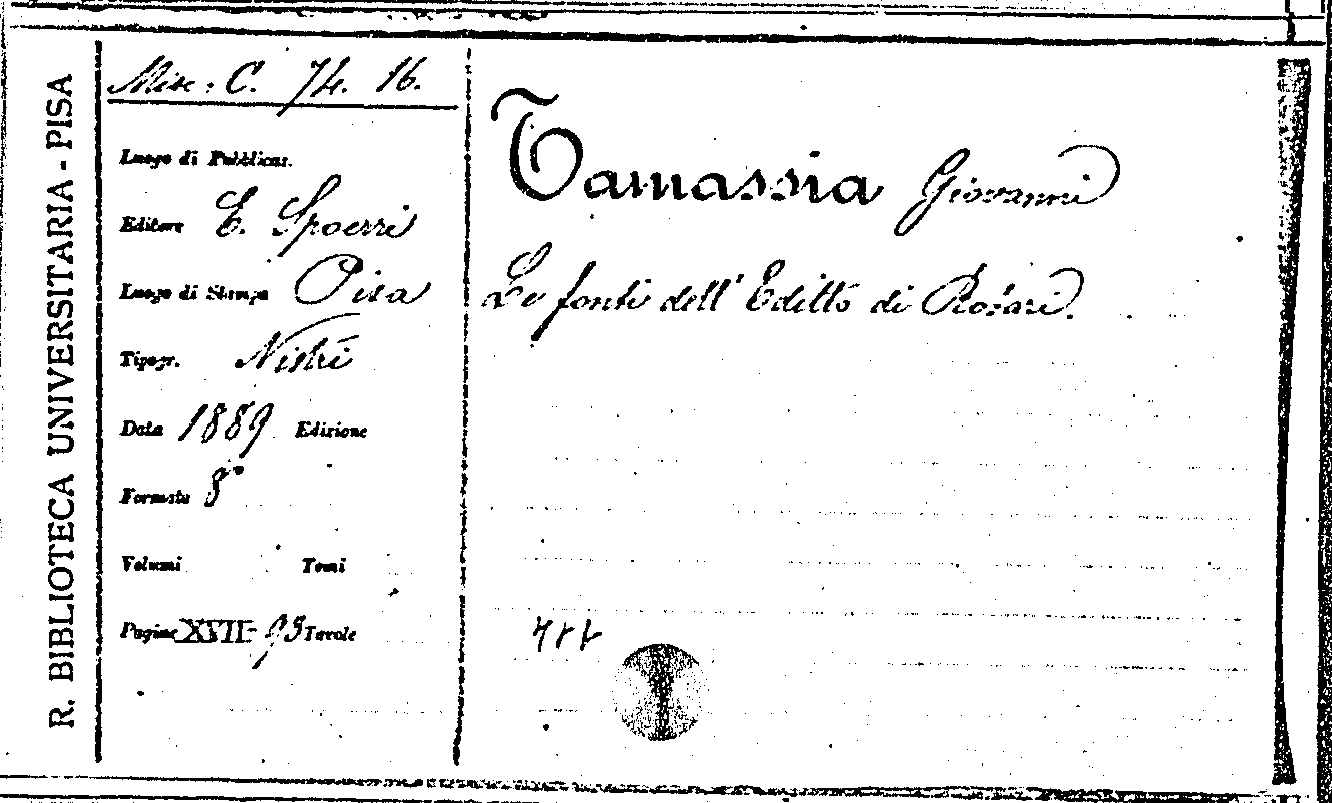 R. BIBLIOTECA UNIVERSITARIA - PISA
Misc. C. 74. 16.
Luogo di Pubblicaz.
Editore E. Spoerri
Luogo di Stampa Pisa
Tipogr. Nistri
Data 1889 Edizione
Formato 8°
Volumi Tomi
Pagine XVII-95 Tavole
Tamassia Giovanni
Le fonti dell'Editto di Rotari.